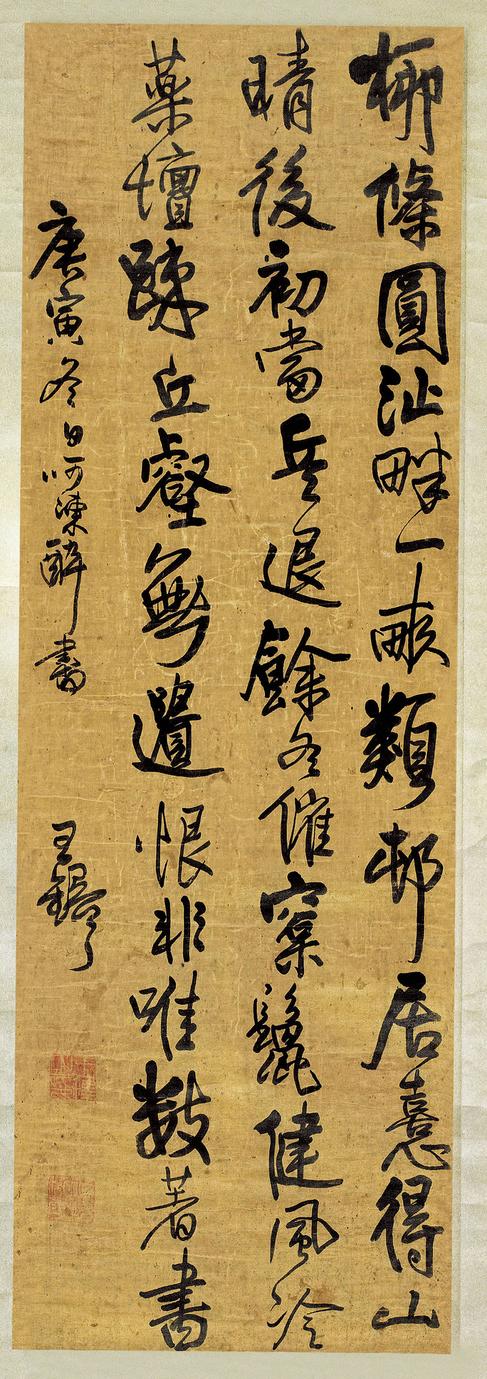 柳條圓沚畔一畝類邨居憙得山
晴後初當兵退餘冬催窠鬣健風冷
藥壇踈丘壑無遺恨非唯數著書
庚寅冬日呵凍醉書
王鐸